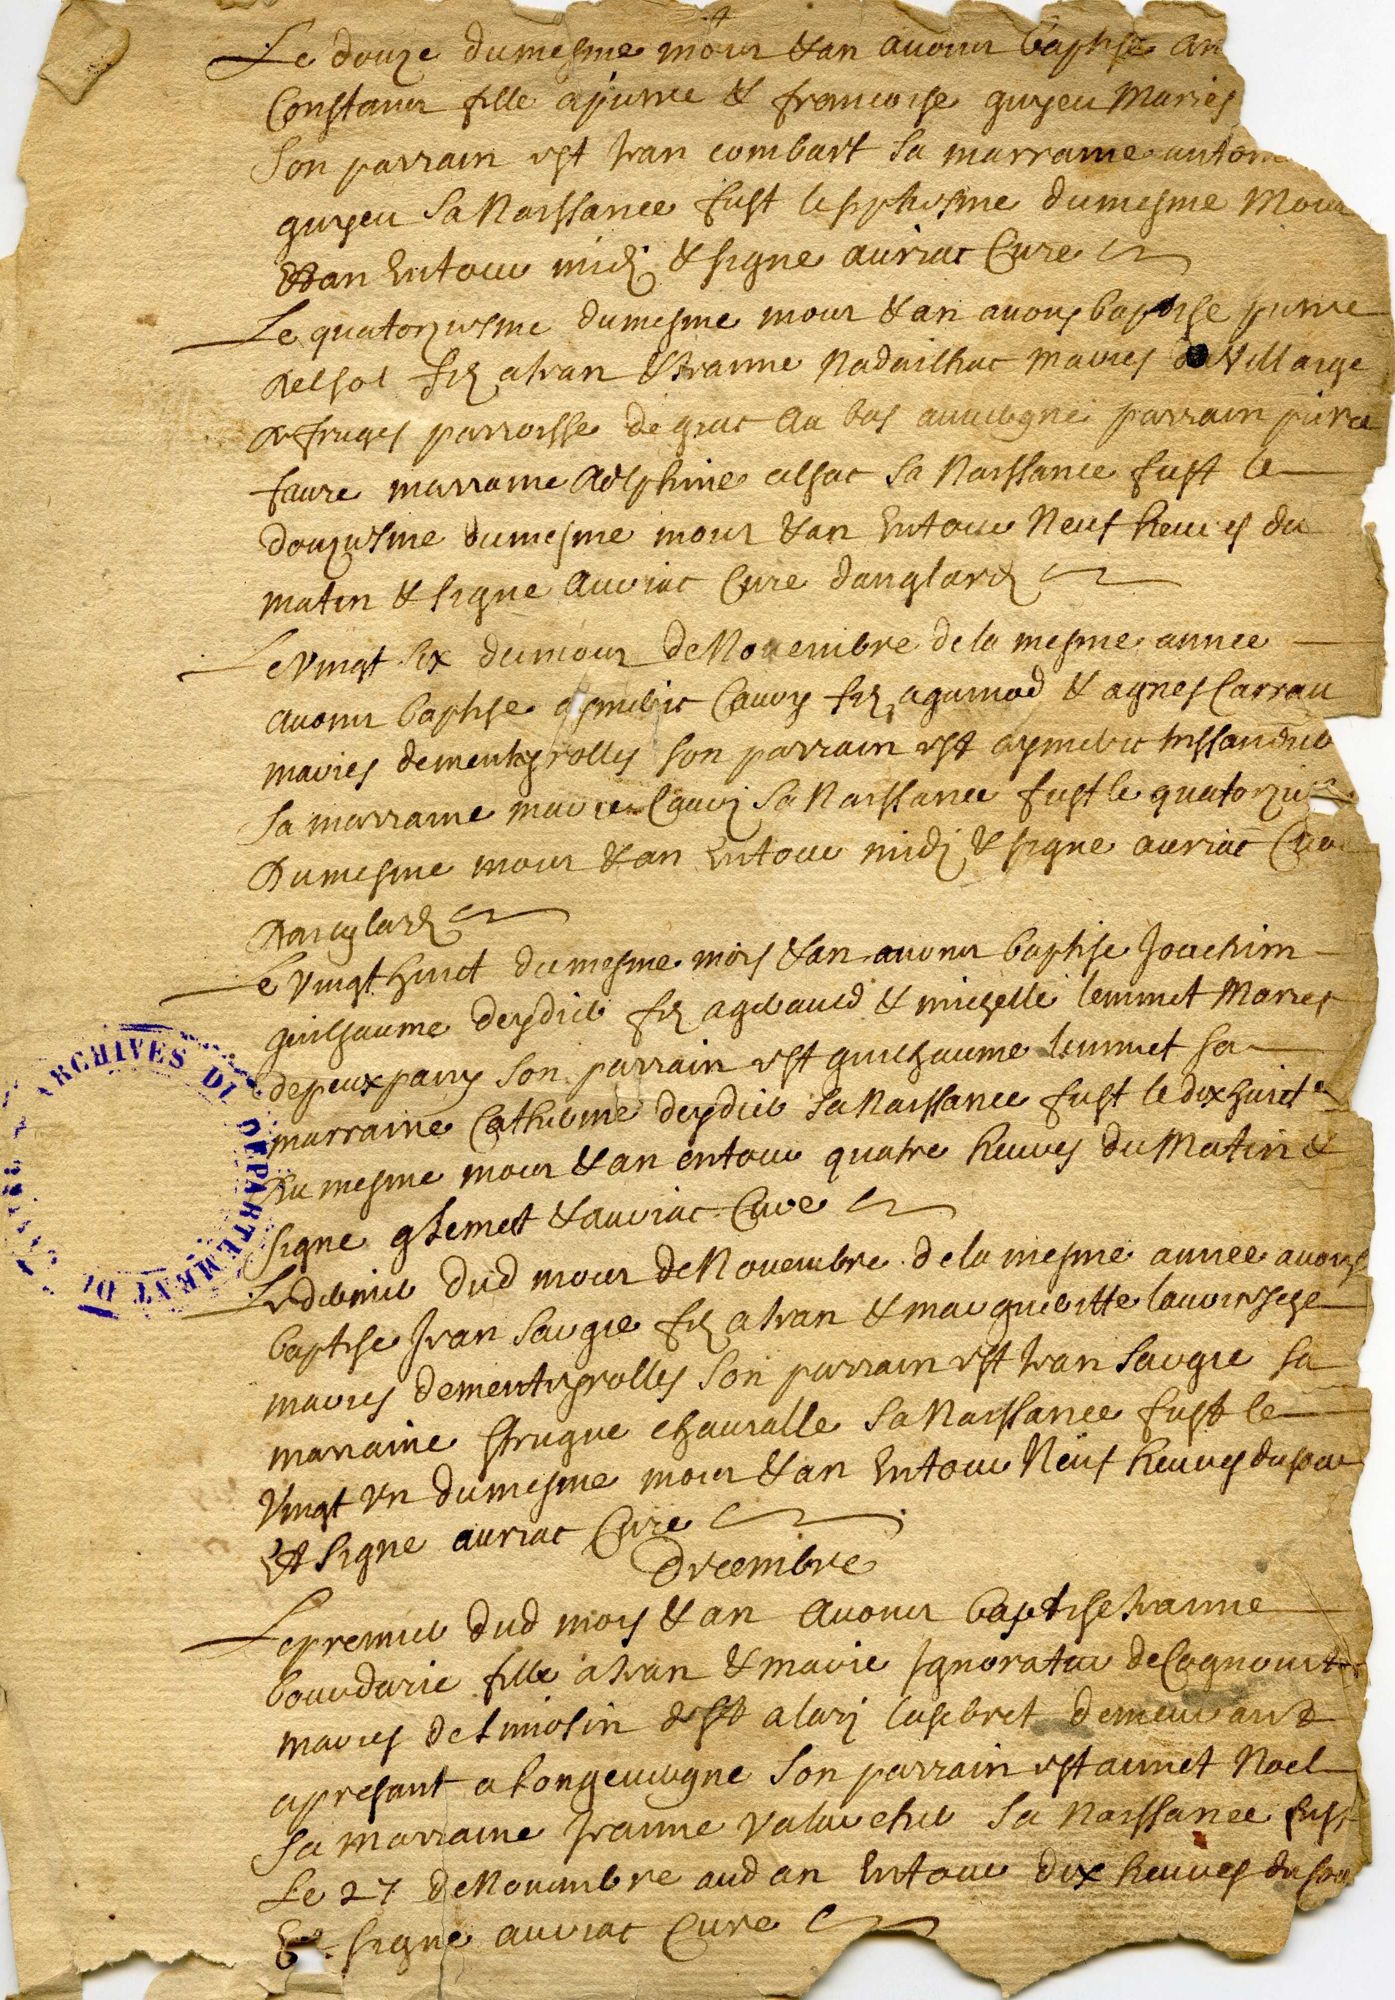 Le douze dumesme mour & an auons baptise an
Constaner fille a pierre & francoise guyeu Maries
Son parrain est Jean combart sa marraine antoin
guyeu Sa Naissance fust le sptiesme dumesme Mour
& an Entour midi & signe auriac Cure
Le quatorziesme dumesme mour & an auons baptise pierre
delsol fils a Jean & Jeanne Nadailhac maries du Villaige
de fruges parroisse de giat au bas auuergne parrain pierre
faure marraine delphine alsac Sa Naissance fust le
douziesme dumesme mour & an Entour Neuf heures du
matin & signe Auriac Cure danglards
Le Vingt six du mour de Nouembre de la mesme annee
auons baptise aymeric Cauvy fils a guinod & agnes Carrau
maries dementeyrolles son parrain est aymeric tissandier
Sa marraine marie Cauvi Sa Naissance fust le quatorzie
Dumesme mour & an Entour midi & signe auriac Cure
danglards
Le Vingt huict du mesme mois & an auons baptise Joachim
guilhaume deydier fils a geraud & michelle lemmet Maries
depeuxpany Son parrain est guilhaume lemmet sa
marraine Catherine deydier Sa Naissance fust le dixhuict e
du mesme mour & an entour quatre heures du Matin &
signe g Lemet & auriac Cure
Le dernier dud mour de Nouembre de la mesme annee auons
baptise Jean Saugie fils a Jean & margueritte lauerghe
maries dementeyrolles Son parrain est Jean Saugie sa
marraine strugue chauralle Sa Naissance fust le
Vingt Vn dumesme mour & an Entour Neuf heures du soir
Et signe auriac Cure
Decembre
Le premier dud mois & an auons baptise Jeanne
bourdarie fille a Jean & marie Ignoratur de Cognom
maries de Limosin & est a lary lasebret demeurant
apresant a Longeuergne Son parrain est annet Noel
Sa Marraine Jeanne Valarcher Sa Naissance fust
Le 27 de Nouembre aud an Entour dix heures du soir
Et signe auriac Cure
ARCHIVES DU DEPARTEMENT DU CANTAL